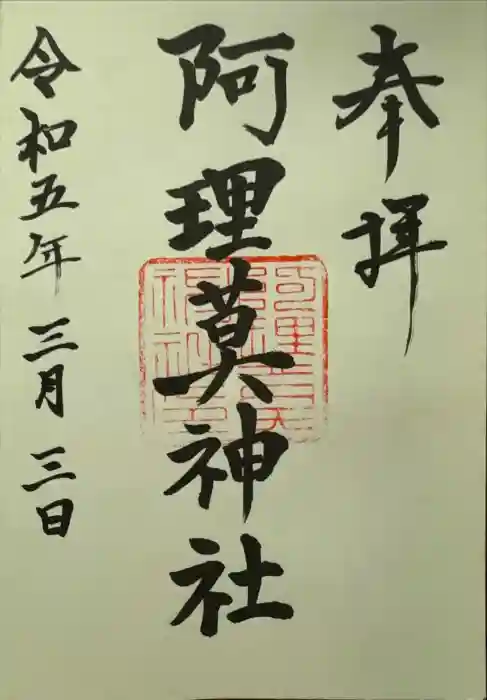 奉拝
阿理莫神社
令和五年 三月 三日